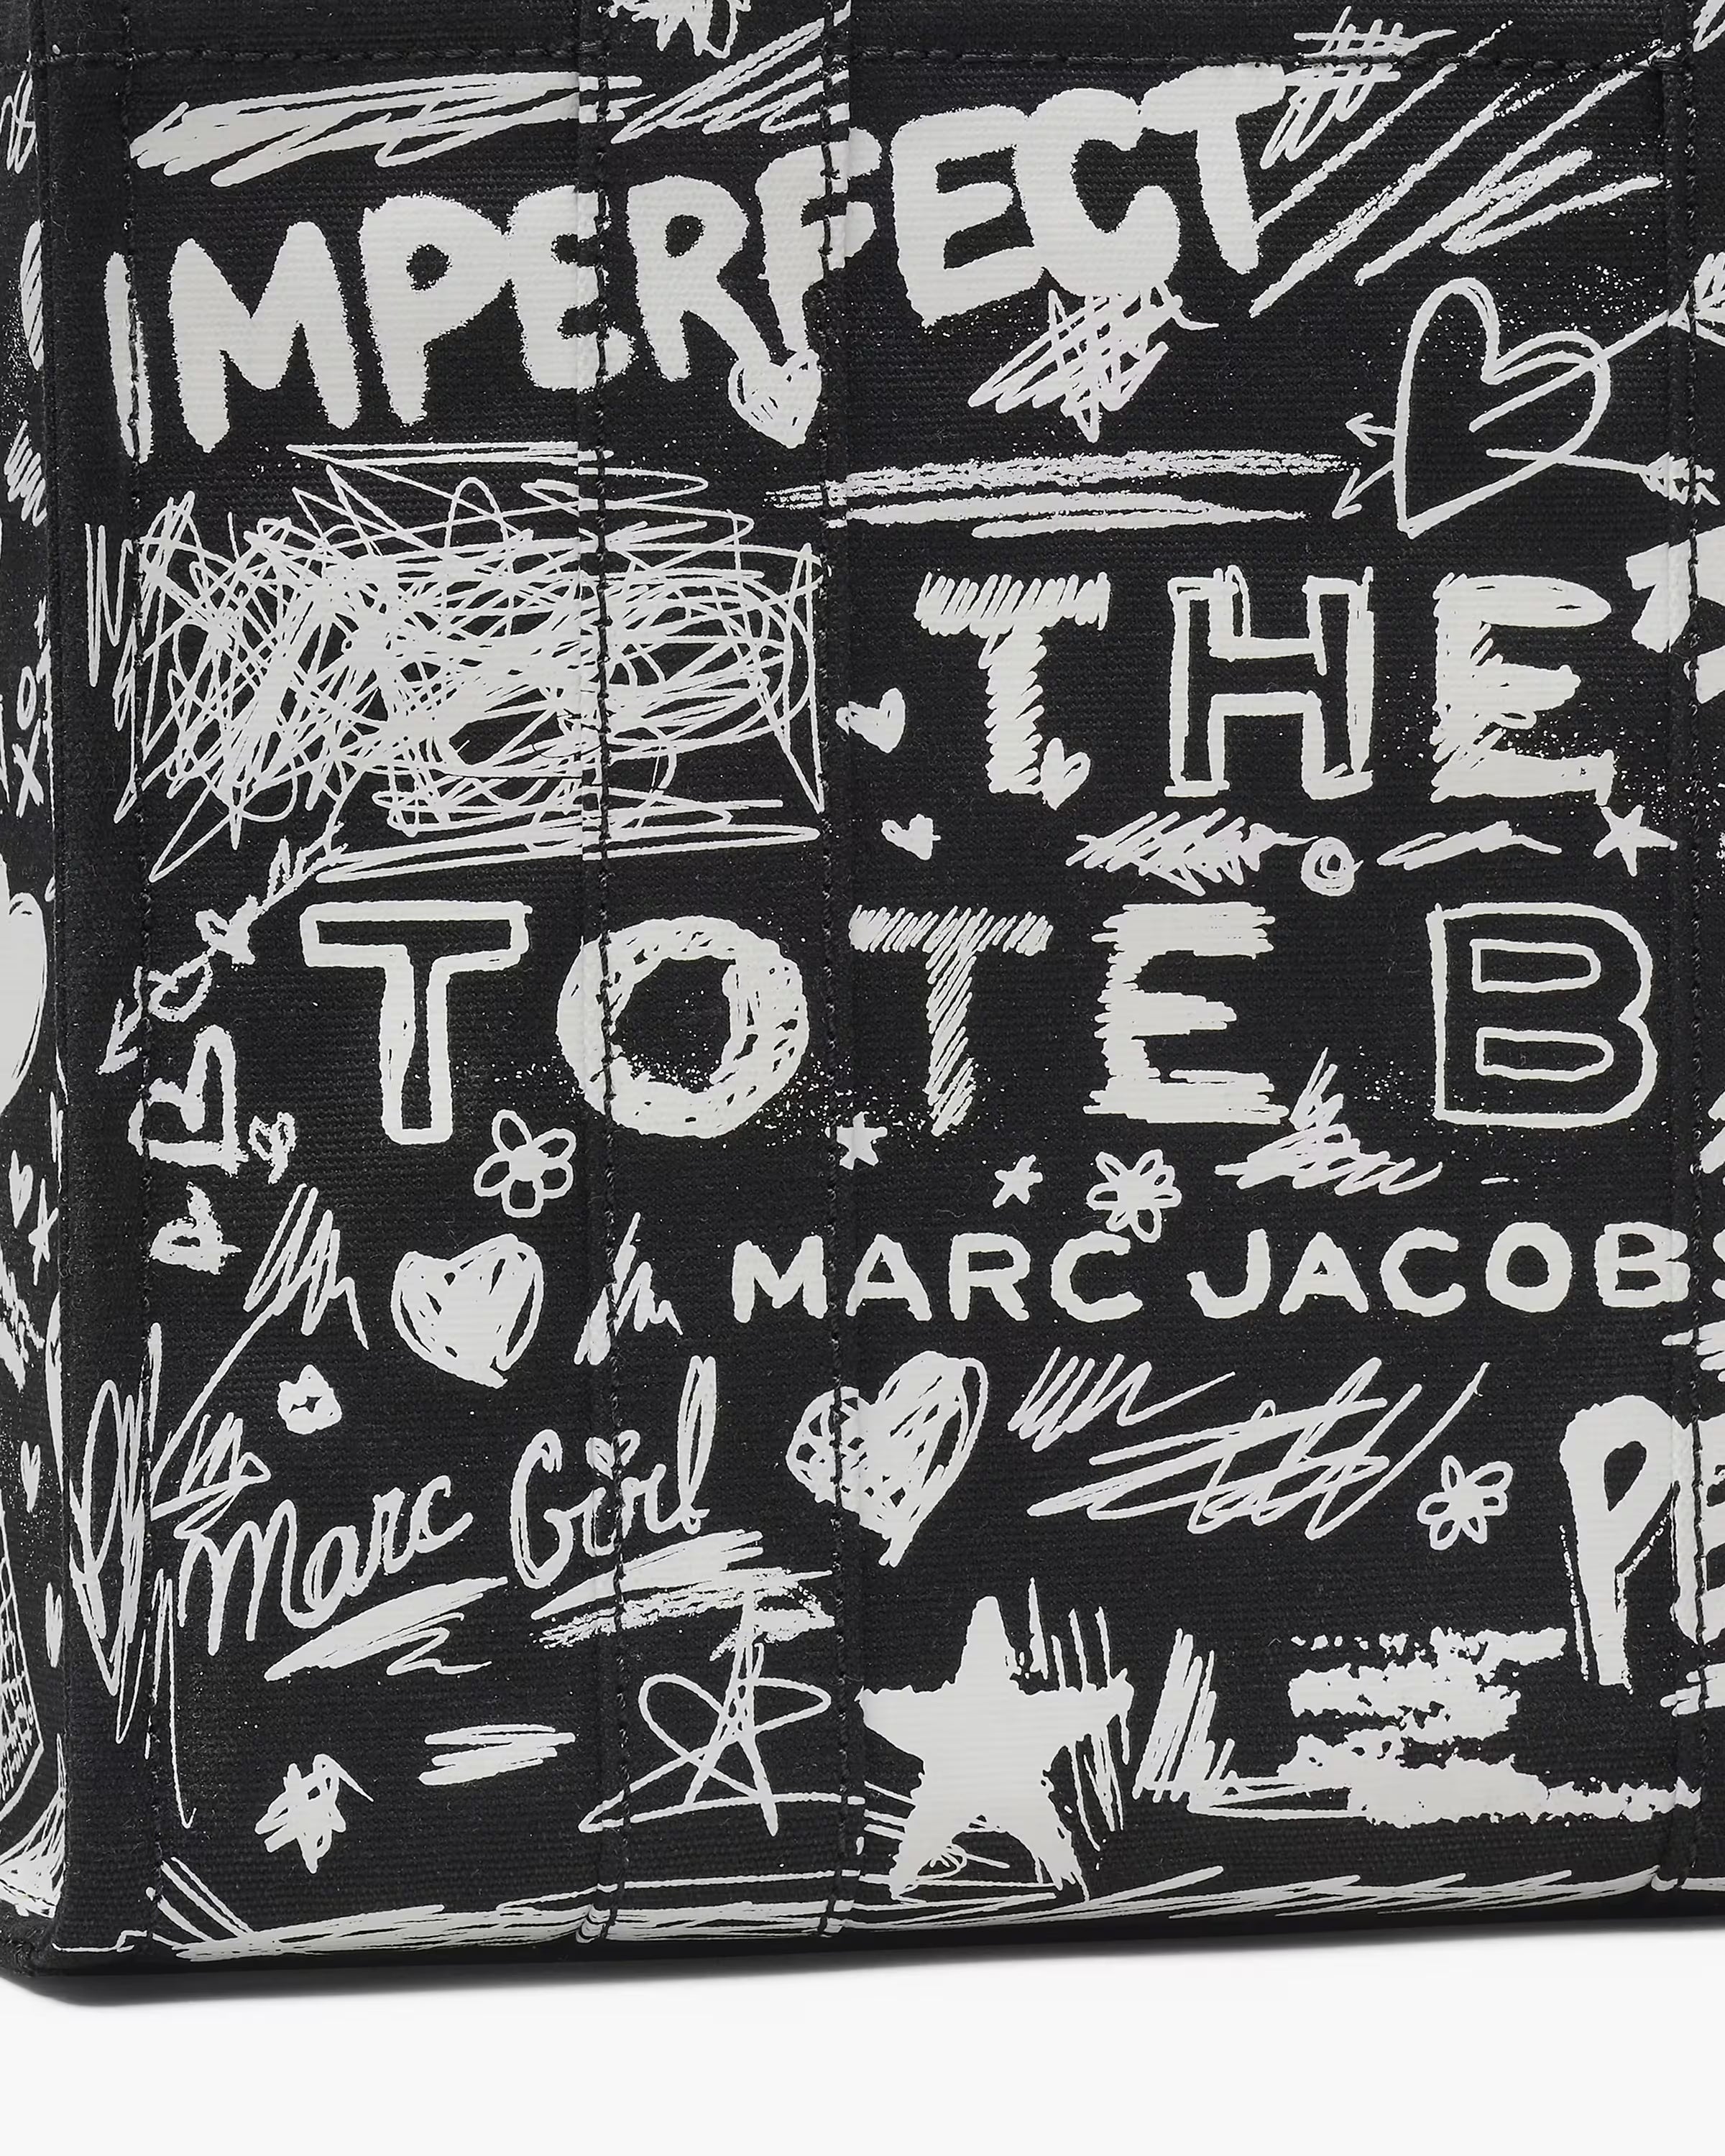 IMPERFECT
THE
TOTE B
MARC JACOBS
Marc Girl
PE